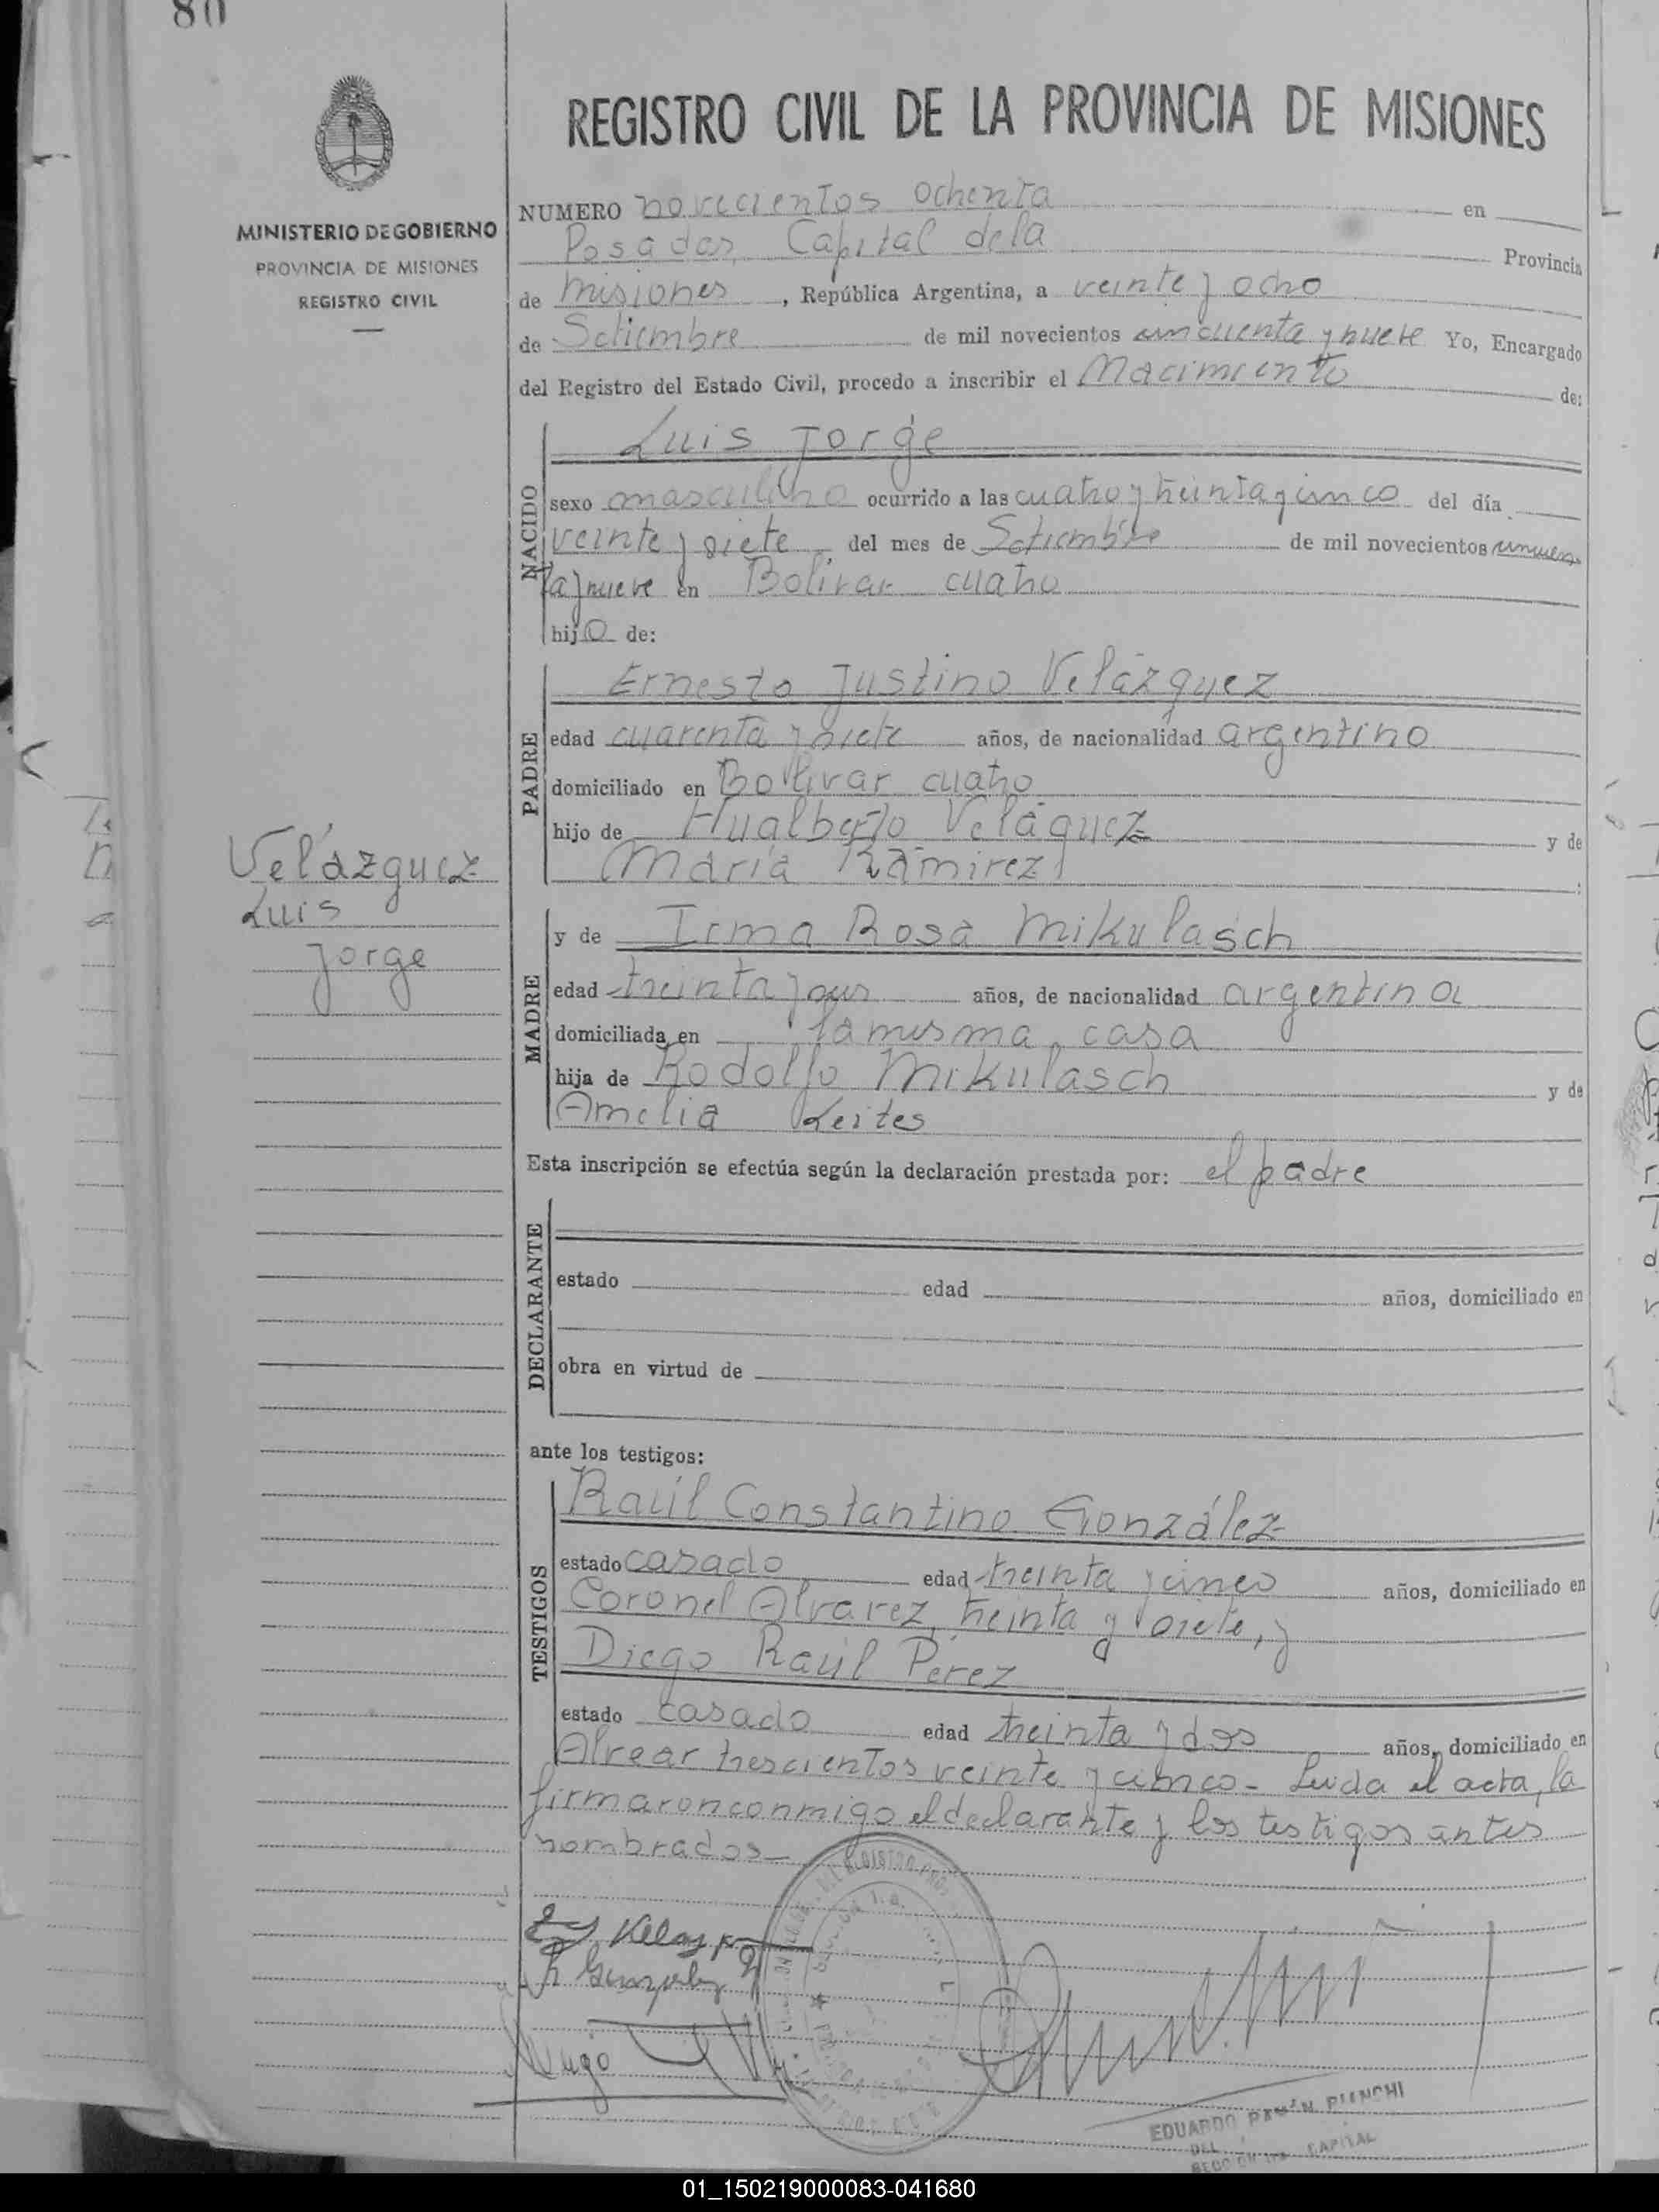 80
REGISTRO CIVIL DE LA PROVINCIA DE MISIONES
MINISTERIO DE GOBIERNO
PROVINCIA DE MISIONES
REGISTRO CIVIL
NUMERO novecientos ochenta en
Posadas, Capital de la Provincia
de Misiones, República Argentina, a veinte y ocho
de Setiembre de mil novecientos cincuenta y nueve Yo, Encargado
del Registro del Estado Civil, procedo a inscribir el Nacimiento de:
NACIDO
Luis Jorge
sexo masculino ocurrido a las cuatro y treinta y cinco del día
veinte y siete del mes de Setiembre de mil novecientos cincuen
ta y nueve en Bolivar cuatro
hijo de:
PADRE
Ernesto Justino Velázquez
edad cuarenta y siete años, de nacionalidad argentino
domiciliado en Bolivar cuatro
hijo de Hualberto Veláquez y de
María Ramirez
Velázquez
Luis
Jorge
MADRE
y de Irma Rosa Mikulasch
edad treinta y años, de nacionalidad argentina
domiciliada en la misma casa
hija de Rodolfo Mikulasch y de
Amelia Leites
Esta inscripción se efectúa según la declaración prestada por: el padre
DECLARANTE
estado edad años, domiciliado en
obra en virtud de
ante los testigos:
TESTIGOS
Raúl Constantino González
estado casado edad treinta y cinco años, domiciliado en
Coronel Alvarez, treinta y siete, y
Diego Raúl Perez
estado casado edad treinta y dos años, domiciliado en
Alvear trescientos veinte y cinco - Leida el acta, la
firmaron conmigo el declarante y los testigos antes
nombrados
EDUARDO RAMÓN BIANCHI
DEL
SECCION CAPITAL
01_150219000083-041680